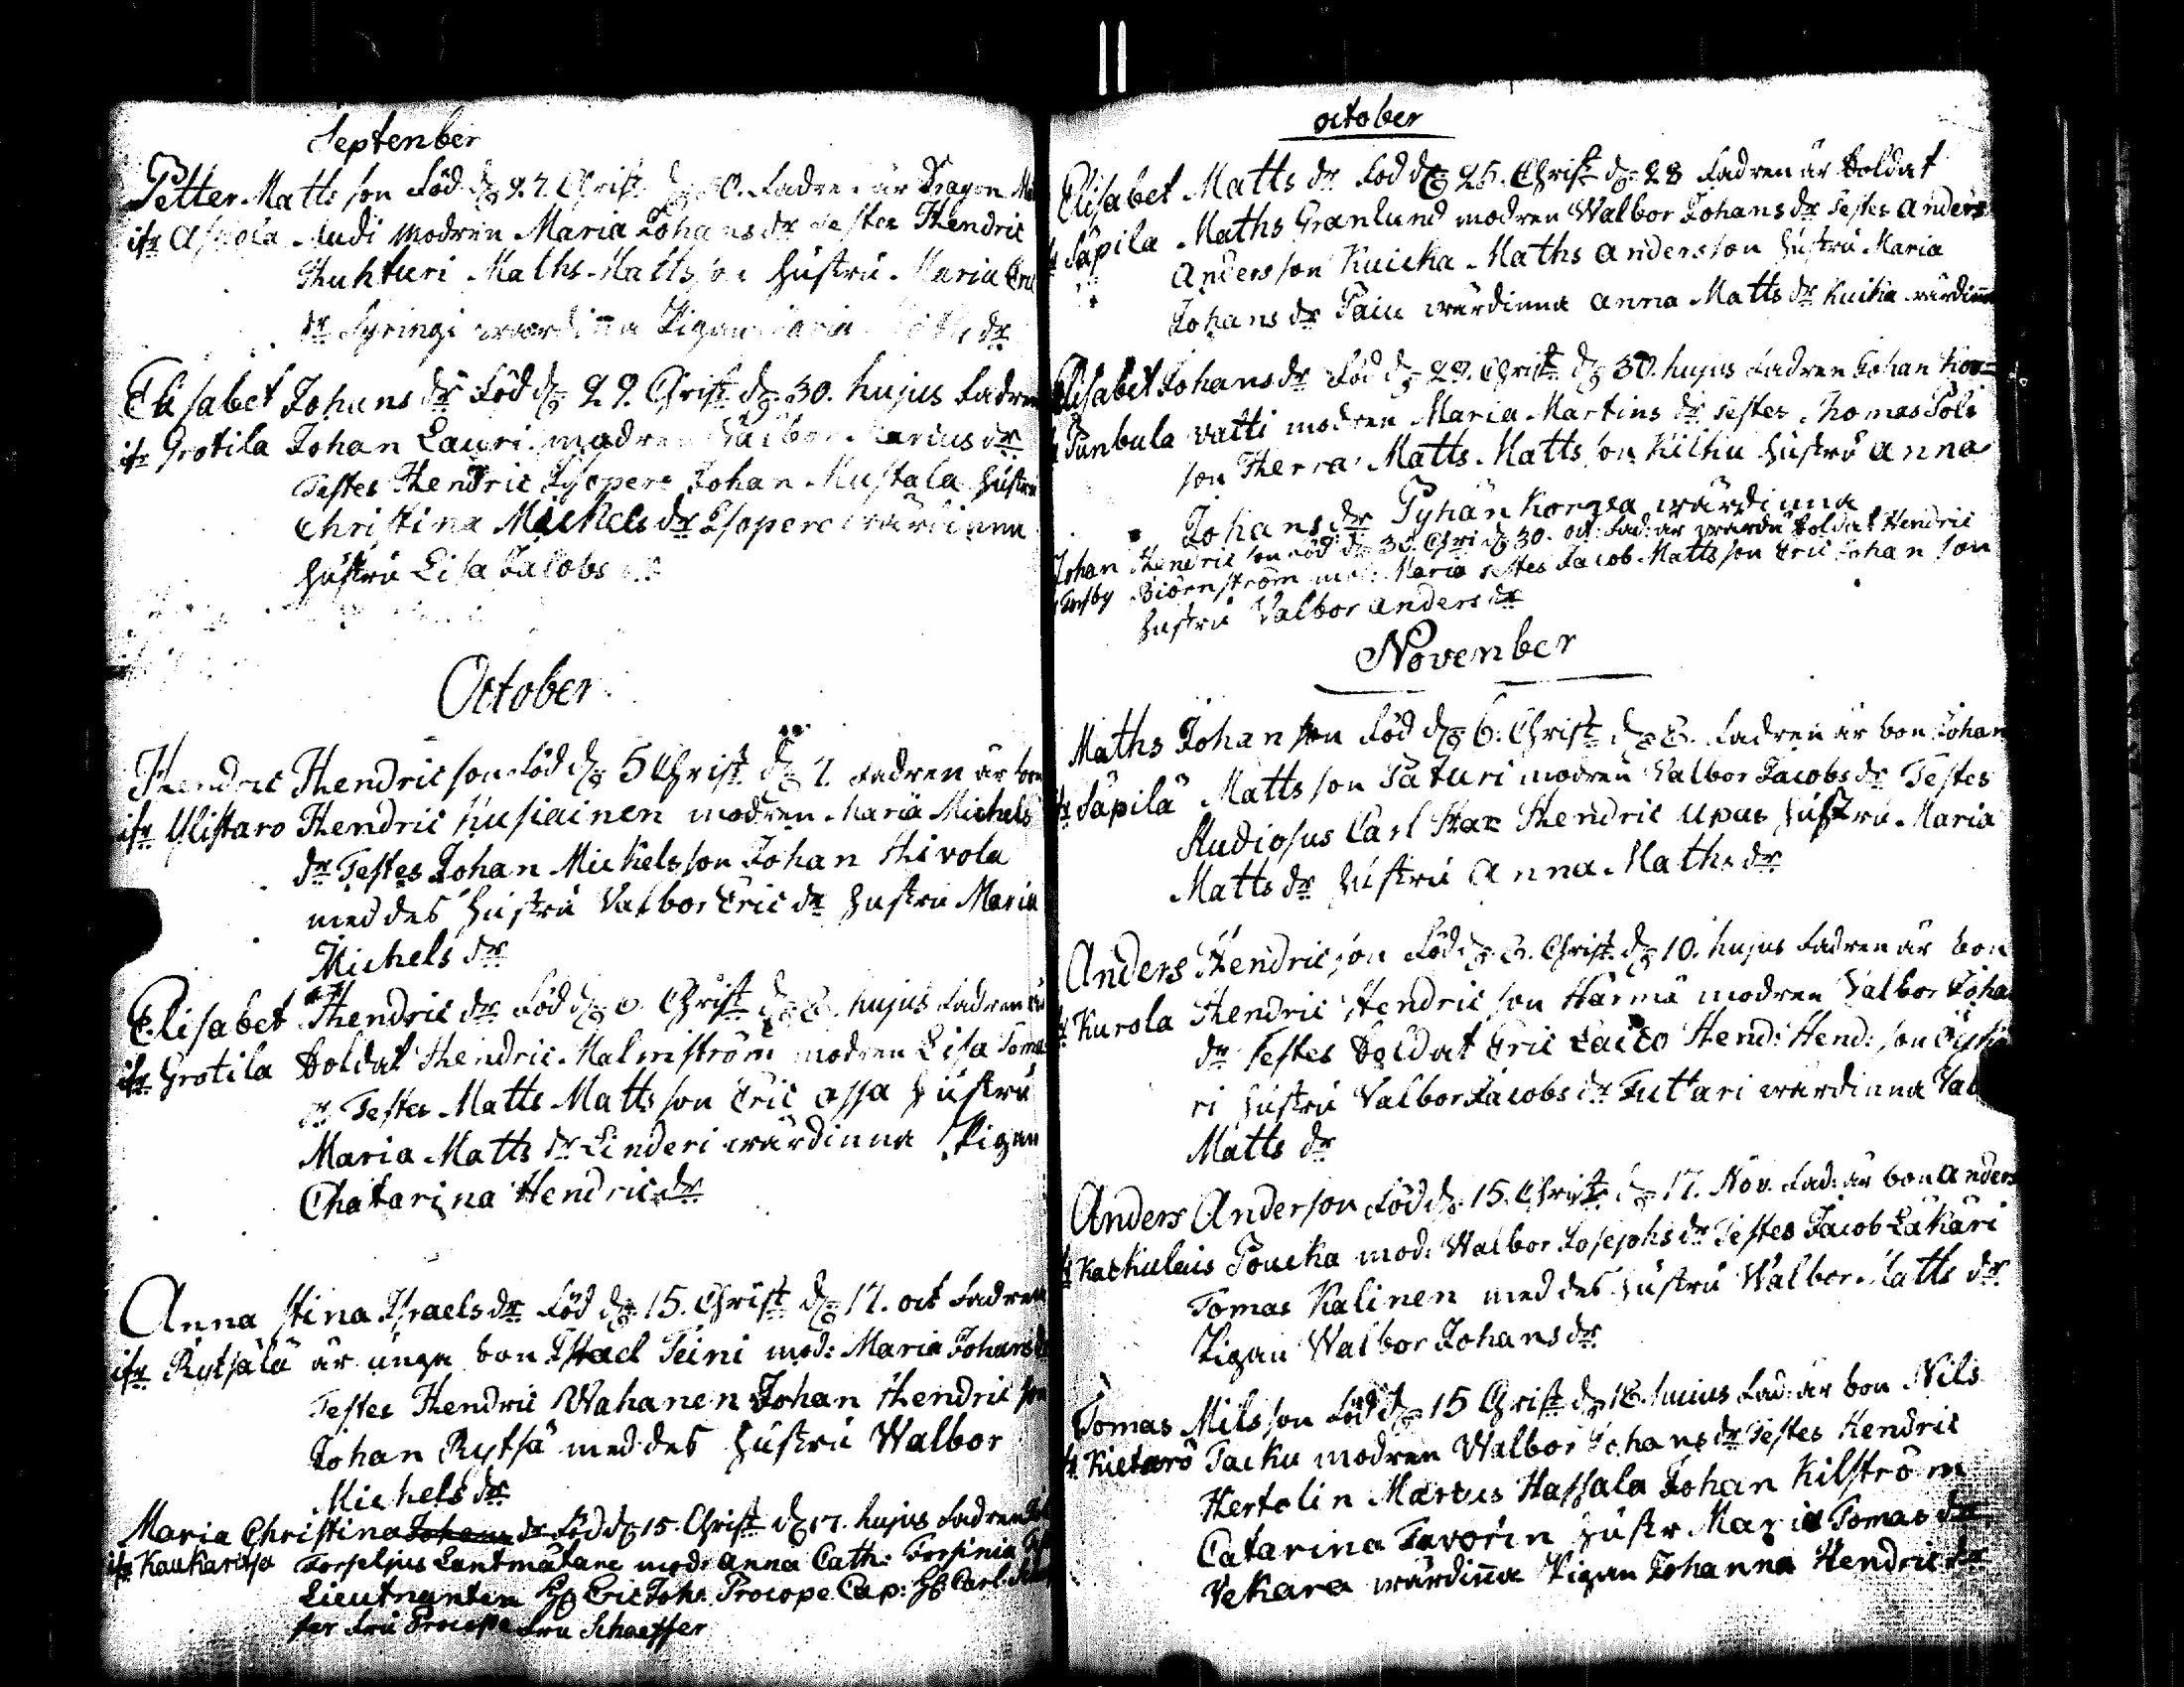 September
Petter Matts son född d 27. Christ d 30. Fadren är Dragon
ifr Modren Maria Johans dr Testes Hendric
Huhturi Maths Matts son hustru Maria
dr Syringi wärdinna Pigan Maria Matts dr
Elisabet Johans dr född d 29. Christ d 30. hujus Fadren
ifr Grotila Johan Lauri modren Valbor Marcus dr
Testes Hendric Isopere Johan Mustala hustru
Christina Mickels dr Isopere wärdinna
hustru Lisa Jacobs dr
October
Hendric Hendric son född d 5 Christ d 7. Fadren är bon
ifr Ylistaro Hendric Kusiainen modren Maria Michels
dr Testes Johan Mickels son Johan Hivola
med des hustru Valbor Eric dr hustru Maria
Michels dr
Elisabet Hendric dr född d 6. Christ d 8. hujus Fadren är
ifr Grotila Soldat Hendric Malmström modren Lisa Tomas
dr Testes Matts Matts son Eric assa hustru
Maria Matts dr Linderi wärdinna Pigan
Chatarina Hendric dr
Anna Stina Israels dr född d 15. Christ d 17. oct Fadren
ifr Rytsälä är unga bon Israel Teini mod: Maria Johans dr
Testes Hendric Wahanen Johan Hendric son
Johan Rytsä med des hustru Walbor
Michels dr
Maria Christina Johans dr född d 15. Christ d 17. hujus Fadren
ifr Kaukaritsa Forseljus Lantmätare mod: Anna Cath: Forsinia
Lieutnanten Hr Eric Joh: Procope Cap: Hr Carl
fer Fru Procope Fru Schaeffer
october
Elisabet Matts dr född d 25. Christ d 28 Fadren är Soldat
Säpilä Maths Granlund modren Walbor Johans dr Testes Anders
Anders son Kuicka Maths Anders son hustru Maria
Johans dr Paiu wärdinna Anna Matts dr Kuika wärdinna
Elisabet Johans dr född d 29. Christ d 30. hujus Fadren Johan Kor=
Punbula vatti modren Maria Martins dr Testes Thomas Pols
son Herra Matts Matts son Kilhu hustru Anna
Johans dr Pyhän Korgea wärdinna
Johan Hendric son född d 30. Chri d 30. oct: Fad: är Soldat Hendric
Torsby Biörnström mod: Maria Testes Jacob Matts son Eric Johan son
hustru Valbor Anders dr
November
Maths Johan son född d 6. Christ d 8. Fadren är bon Johan
ifr Säpilä Matts son Säturi modren Valbor Jacobs dr Testes
Studiosus Carl Star Hendric Upus hustru Maria
Matts dr hustru Anna Maths dr
Anders Hendric son född d 8. Christ d 10. hujus Fadren är bon
Kurola Hendric Hendric son Härmä modren Valbor Johans
dr Testes Soldat Eric Laico Hend: Hend: son
ri hustru Valbor Jacobs dr Tuttari wärdinna Val
Matts dr
Anders Anderson född d 15. Christ d 17. Nov. Fad: är bon Anders
Karkuleus Poucka mod: Walbor Josephs dr Testes Jacob Läkäri
Tomas Kalinen med des hustru Walbor Matts dr
Pigan Walbor Johans dr
Tomas Nils son född d 15 Christ d 18. hujus Fad: är bon Nils
Kietarö Tacku modren Walbor Johans dr Testes Hendric
Hertolin Marcus Hassala Johan Kilström
Catarina Favorin hustr Maria Tomas dr
Vekara wärdinna Pigan Johanna Hendric dr